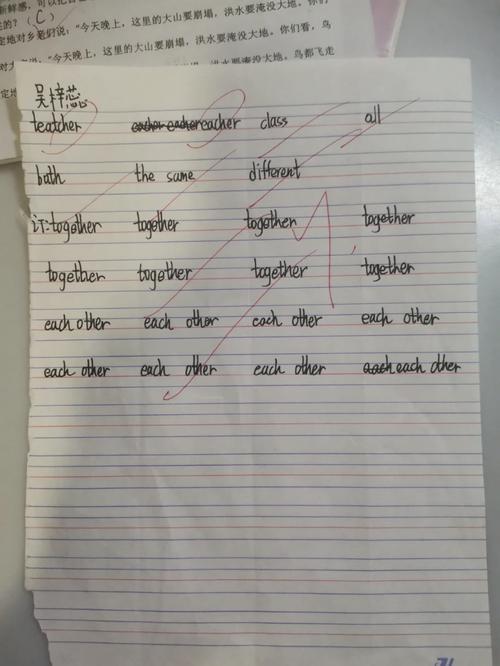 的？（C）
定地对乡亲们说：“今天晚上，这里的大山要崩塌，洪水要淹没大地。你们
“今天晚上，这里的大山要崩塌，洪水要淹没大地。你们看，鸟
洪水要淹没大地。鸟都飞走
吴梓蕊
teatcher eacher eacher eacher class all
bath the same different
订:together together together together
together together together together
each other each other each other each other
each other each other each other each each other